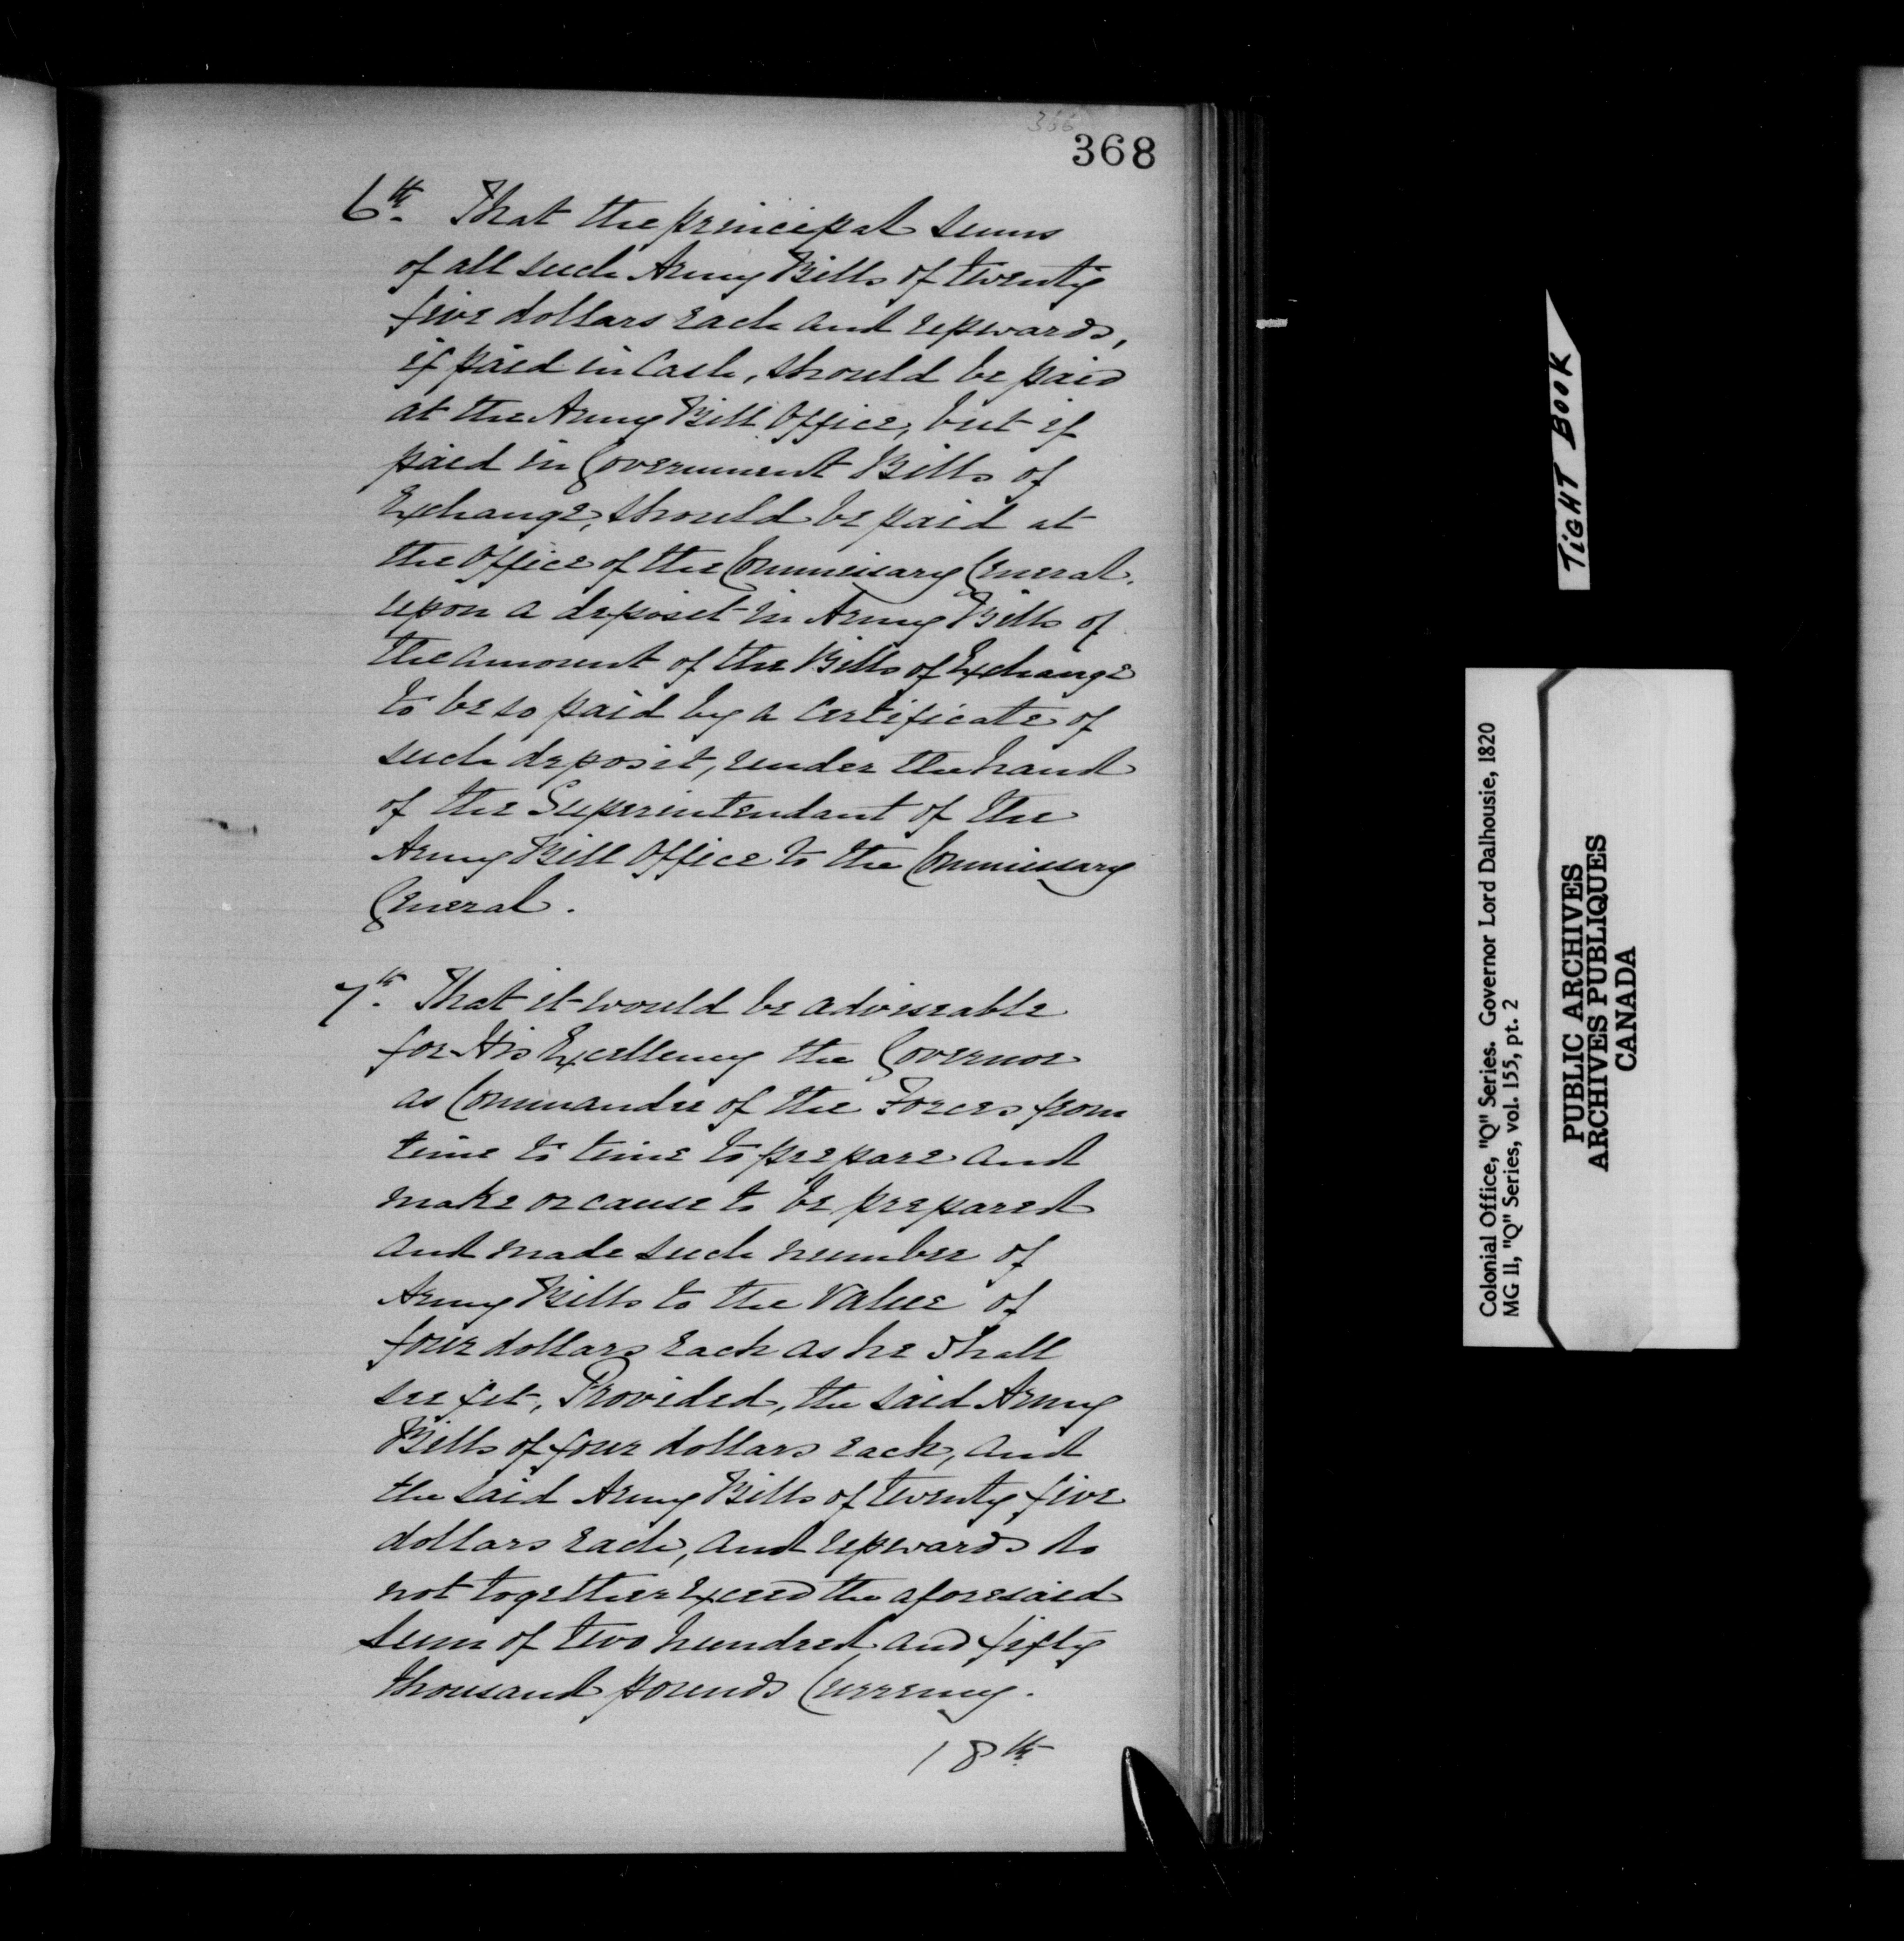 366
368
6th. That the principal sums
of all such Army Bills of twenty
five dollars each and upwards,
if paid in Cash, should be paid
at the Army Bill Office, but if
paid in Government Bills of
Exchange, should be paid at
the Office of the Commissary General.
upon a deposit in Army Bills of
the amount of the Bills of Exchange
to be so paid by a Certificate of
such deposit, under the hand
of the Superintendant of the
Army Bill Office to the Commissary
General.
7th. That it would be adviseable
for His Excellency the Governor
as Commander of the Forces from
time to time to prepare and
make or cause to be prepared
and made such number of
Army Bills to the Value of
four dollars each as he shall
see fit, Provided, the said Army
Bills of four dollars each, and
the said Army Bills of twenty five
dollars each, and upwards do
not together exceed the aforesaid
sum of two hundred and fifty
thousand pounds Currency.
/ 8th
TIGHT BOOK
Colonial Office, "Q" Series. Governor Lord Dalhousie, 1820
MG 11, "Q" Series, vol. 155, pt. 2
PUBLIC ARCHIVES
ARCHIVES PUBLIQUES
CANADA